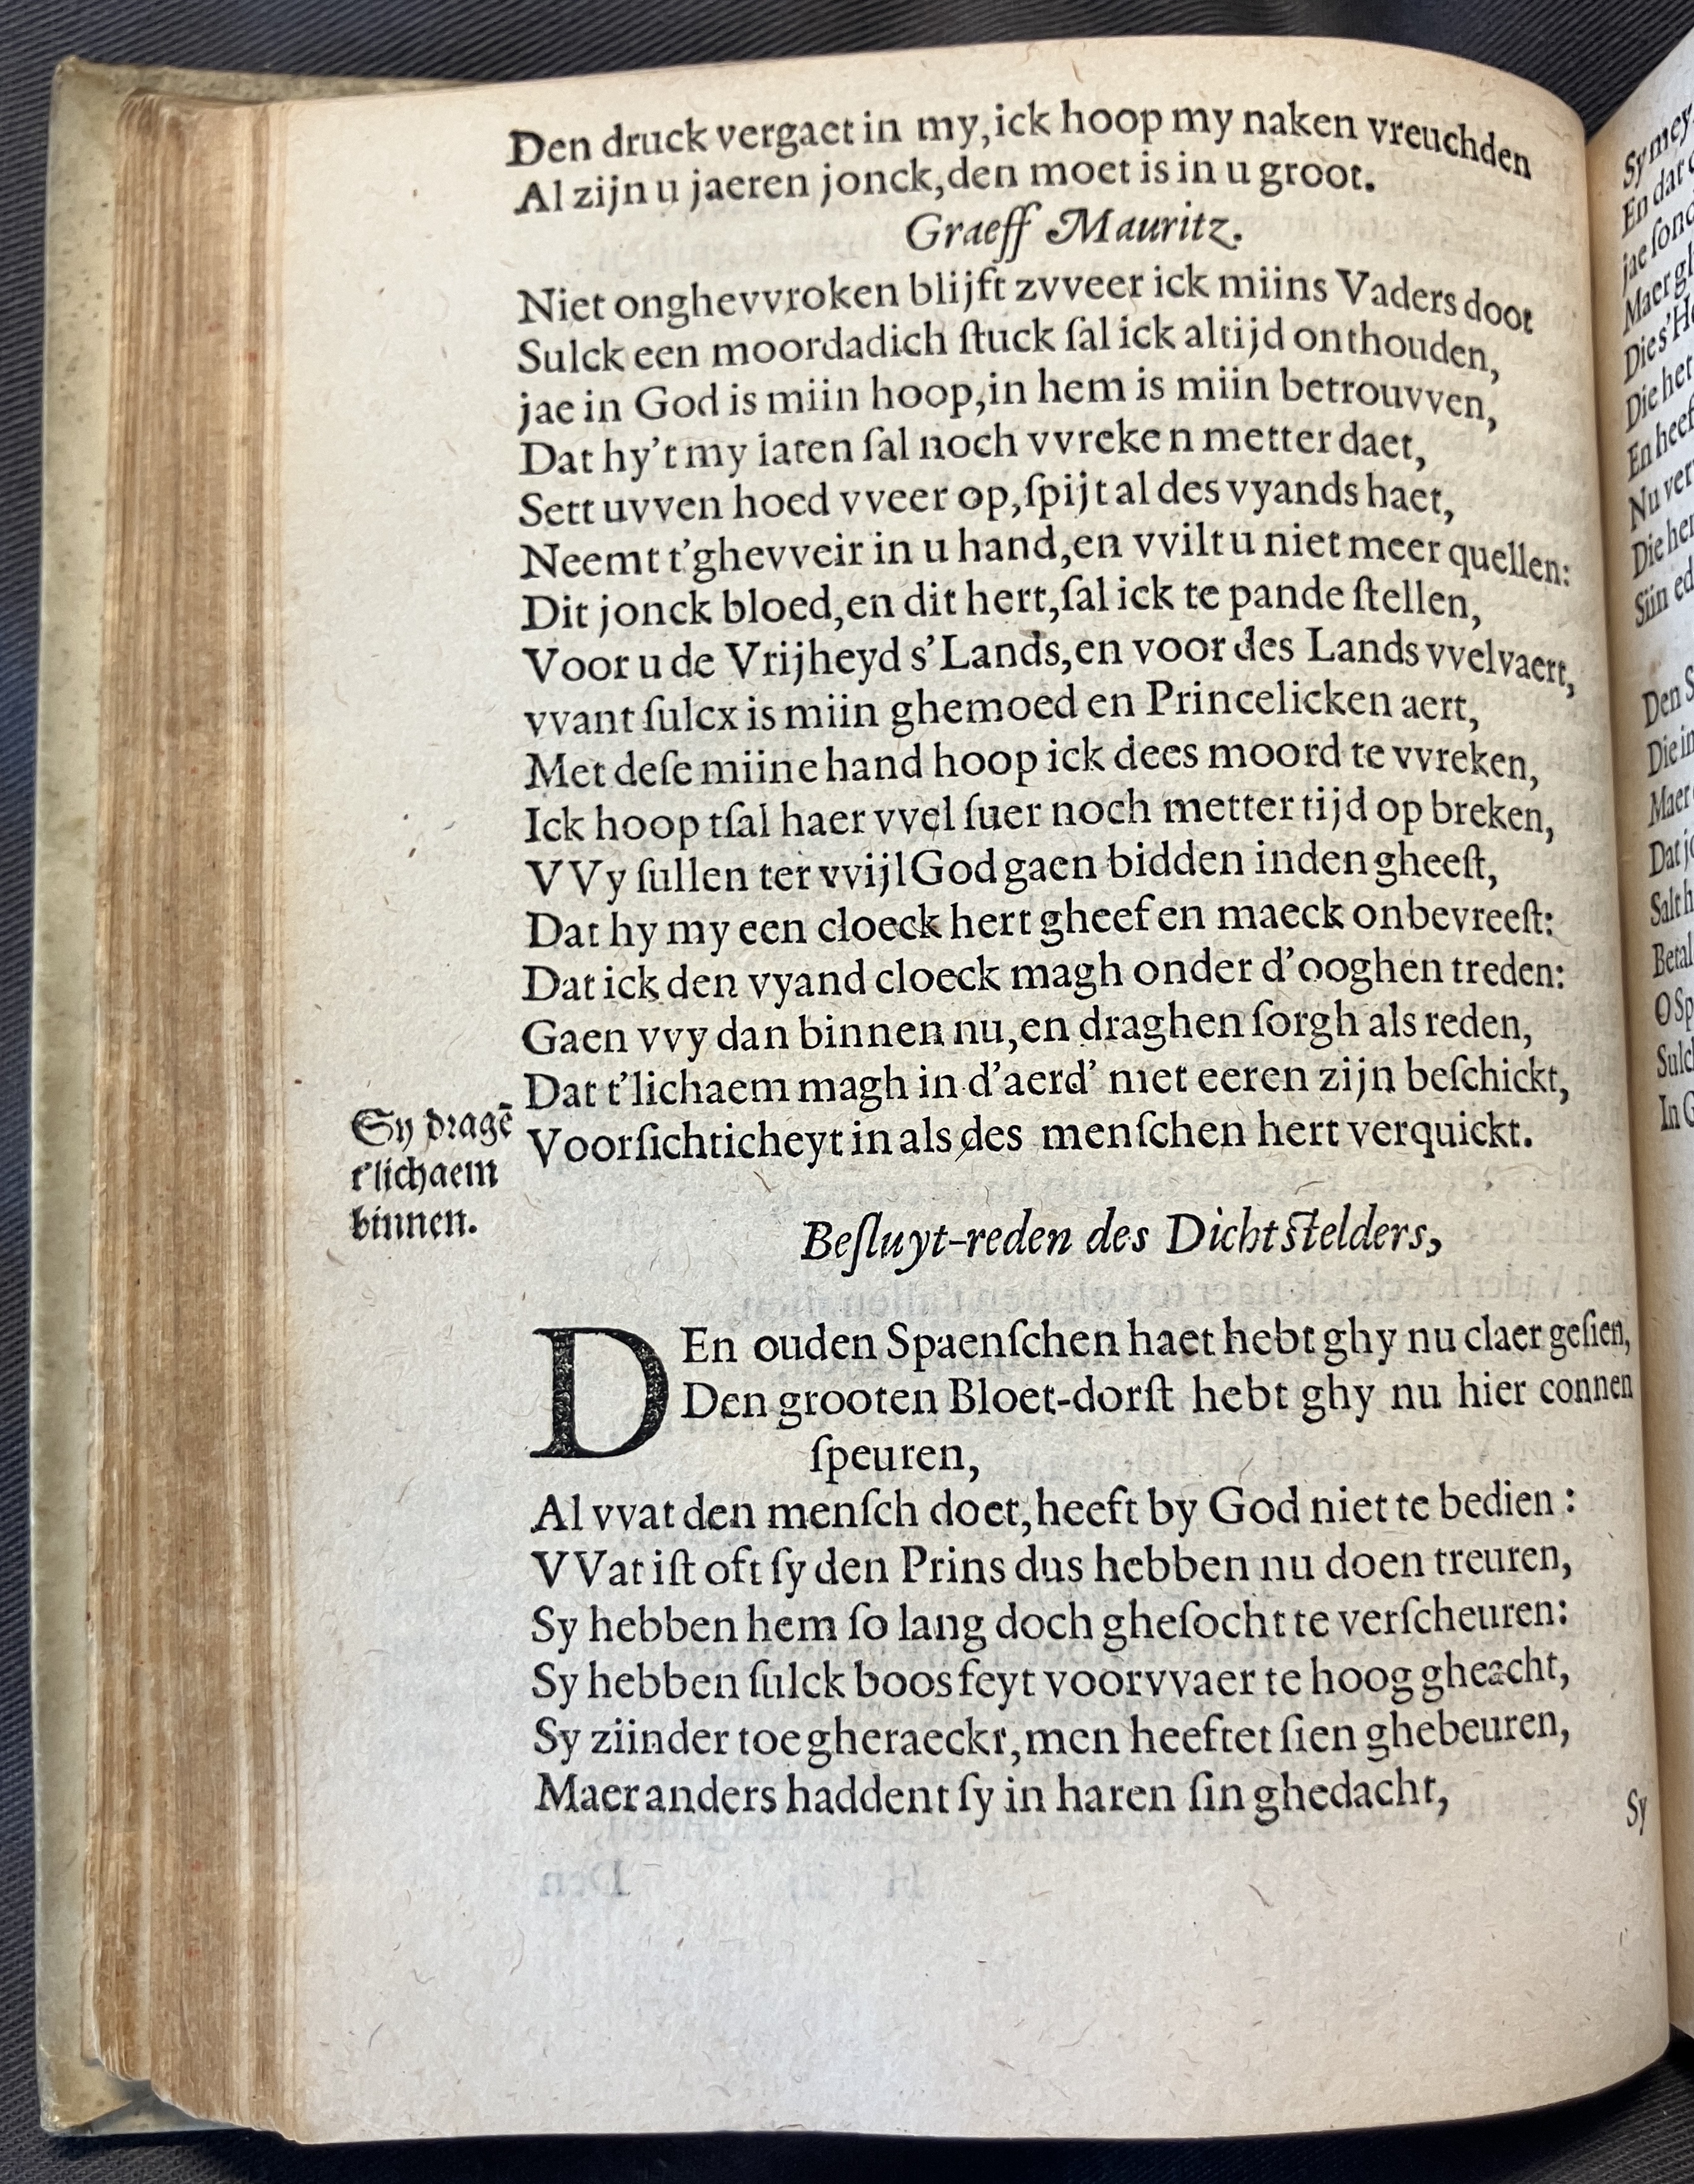 Den druck vergaet in my, ick hoop my naken vreuchden
Al zijn u jaeren jonck, den moet is in u groot.
Graeff Mauritz.
Niet onghevvroken blijft zvveer ick miins Vaders doot
Sulck een moordadich ſtuck ſal ick altijd onthouden,
jae in God is miin hoop, in hem is miin betrouvven,
Dat hy't my laten ſal noch vvreken metter daet,
Sett uvven hoed vveer op, ſpijt al des vyands haet,
Neemt t'ghevveir in u hand, en vvilt u niet meer quellen:
Dit jonck bloed, en dit hert, ſal ick te pande ſtellen,
Voor u de Vrijheyd s'Lands, en voor des Lands vvelvaert,
vvant ſulcx is miin ghemoed en Princelicken aert,
Met deſe miine hand hoop ick dees moord te vvreken,
Ick hoop tſal haer vvel ſuer noch metter tijd op breken,
VVy ſullen ter vvijl God gaen bidden inden gheeſt,
Dat hy my een cloeck hert gheef en maeck onbevreeſt:
Dat ick den vyand cloeck magh onder d'ooghen treden:
Gaen vvy dan binnen nu, en draghen ſorgh als reden,
Dat t'lichaem magh in d'aerd' niet eeren zijn beſchickt,
Voorſichticheyt in als des menſchen hert verquickt.
Sy dragē
t'lichaem
binnen.
Beſluyt-reden des Dichtſtelders,
DEn ouden Spaenſchen haet hebt ghy nu claer geſien,
Den grooten Bloet-dorſt hebt ghy nu hier connen
ſpeuren,
Al vvat den menſch doet, heeft by God niet te bedien :
VVat iſt oft ſy den Prins dus hebben nu doen treuren,
Sy hebben hem ſo lang doch gheſocht te verſcheuren:
Sy hebben ſulck boos feyt voorvvaer te hoog gheacht,
Sy ziinder toe gheraeckt, men heeftet ſien ghebeuren,
Maer anders haddent ſy in haren ſin ghedacht,
Sy mey
En dat
jae ſonc
Maer gl
Die s'He
Die het
En heef
Nu ver
Die her
Siin ed
Den S
Die in
Maer
Dat jo
Salt h
Betal
O Sp
Sulcl
In G
Sy